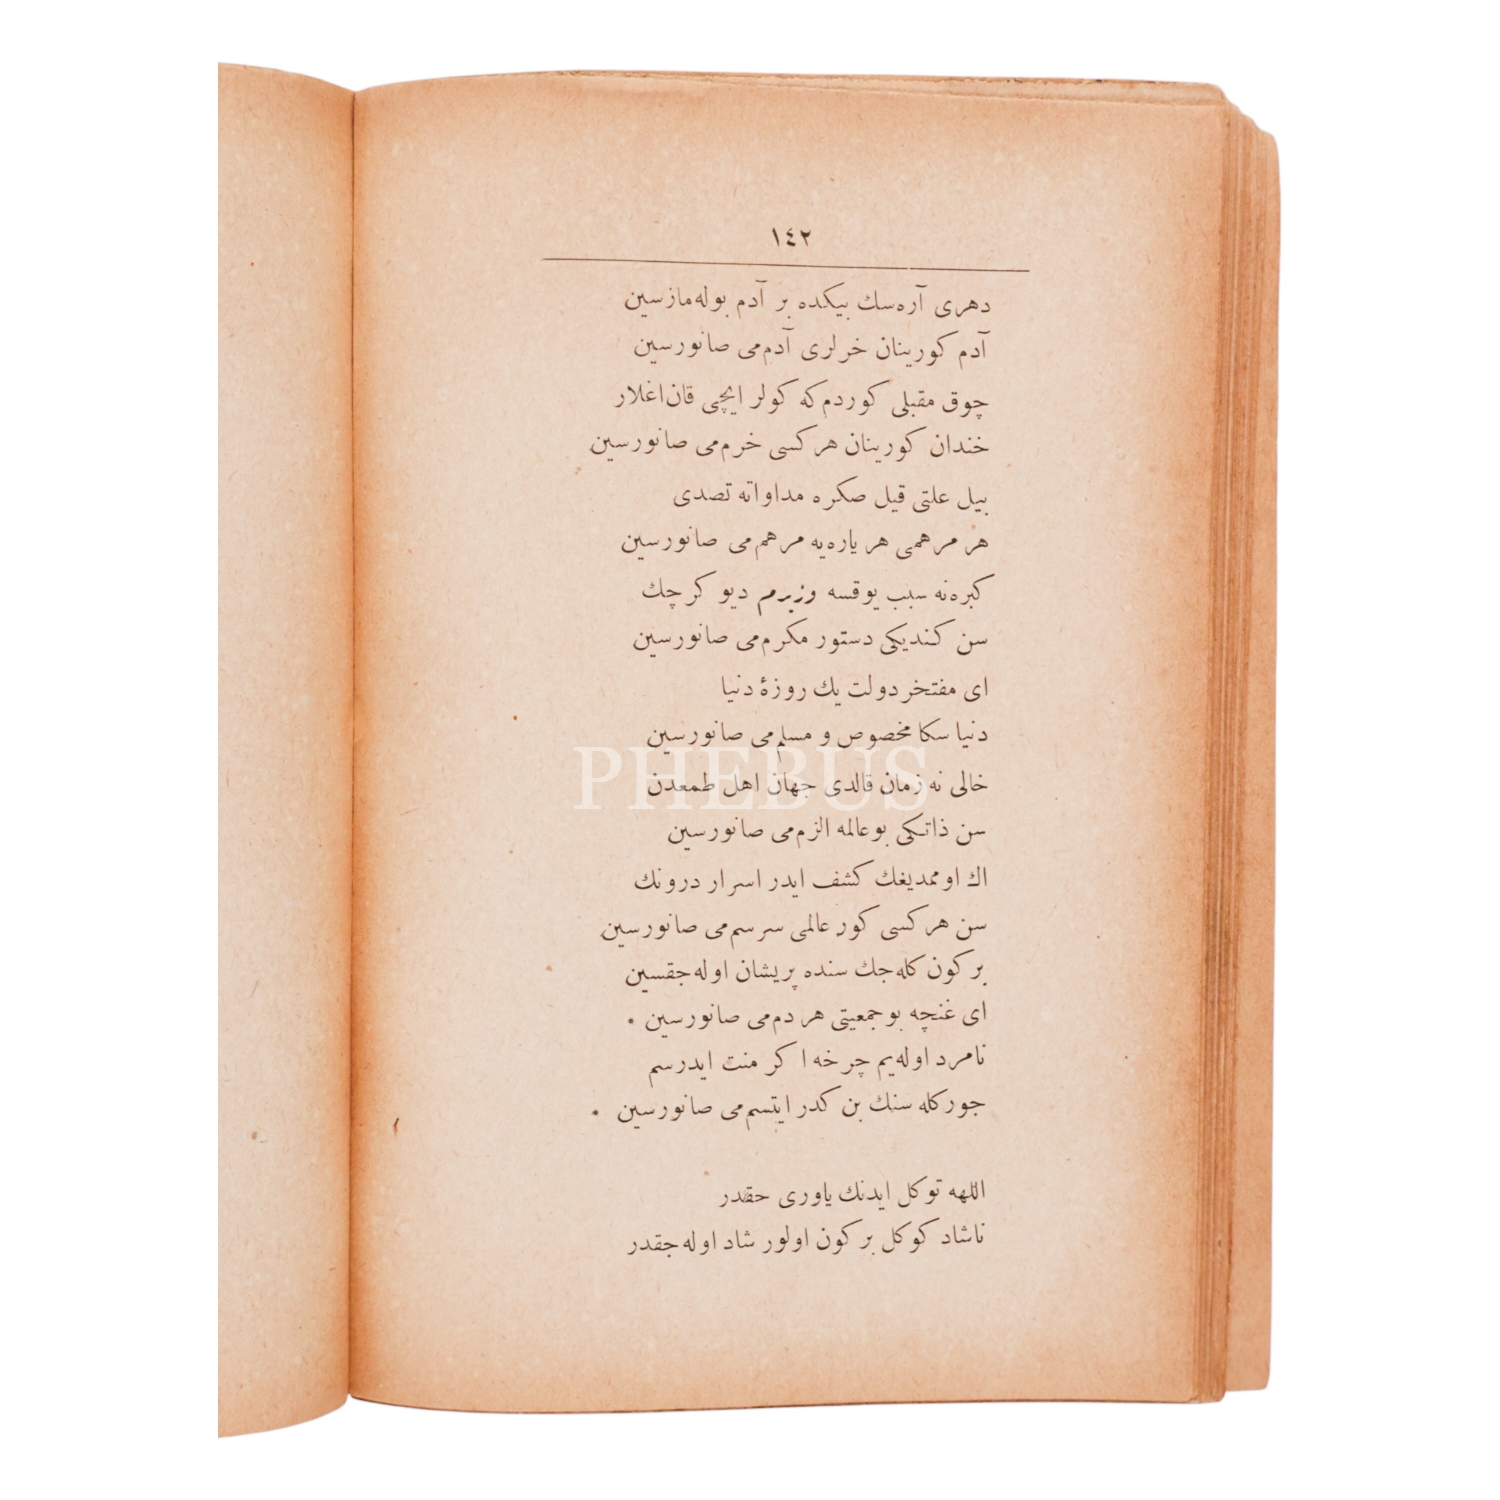 ١٤٢
دهری آره‌سك بیكده بر آدم بوله‌مازسین
آدم كورینان خرلری آدم‌می صانورسین
چوق مقبلی كوردم‌كه كولر ایچی قان‌اغلار
خندان كورینان هركسی خرم‌می صانورسین
بیل علتی قیل صكره مداواته تصدی
هر مرهمی هر یاره‌یه مرهم‌می صانورسین
كبره‌نه سبب یوقسه وزیرم دیو كرچك
سن كندیكی دستور مكرم‌می صانورسین
ای مفتخر دولت یك روزهٔ دنیا
دنیا سكا مخصوص و مسلم‌می صانورسین
خالی نه زمان قالدی جهان اهل طمعدن
سن ذاتكی بوعالمه الزم‌می صانورسین
اك اوممدیغك كشف ایدر اسرار درونك
سن هركسی كور عالمی سرسم‌می صانورسین
بر كون كله‌جك سنده پریشان اوله‌جقسین
ای غنچه بوجمعیتی هر دم‌می صانورسین *
نامرد اوله‌یم چرخه اكر منت ایدرسم
جوركله سنك بن كدر ایتسم‌می صانورسین *
اللهه توكل ایدنك یاوری حقدر
ناشاد كوكل بر كون اولور شاد اوله‌جقدر
PHEBUS